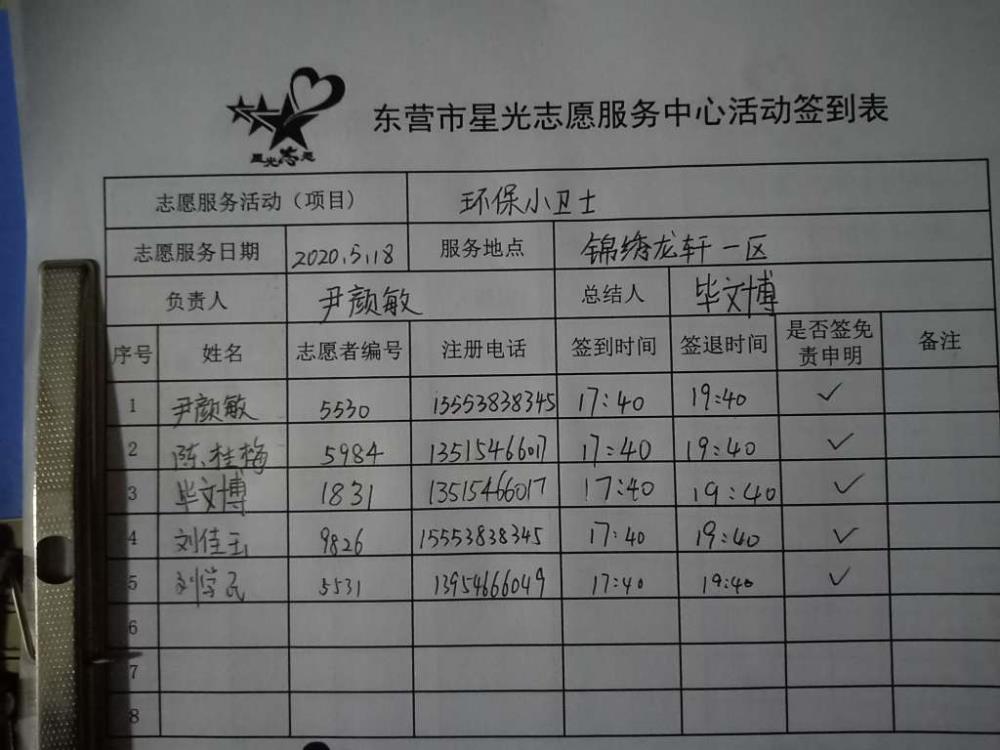 星光志愿
东营市星光志愿服务中心活动签到表
志愿服务活动（项目） 环保小卫士
志愿服务日期 2020.5.18 服务地点 锦绣龙轩一区
负责人 尹颜敏 总结人 毕文博
序号 姓名 志愿者编号 注册电话 签到时间 签退时间 是否签免责申明 备注
1 尹颜敏 5530 15553838345 17:40 19:40 ✓
2 陈桂梅 5984 13515466017 17:40 19:40 ✓
3 毕文博 1831 13515466017 17:40 19:40 ✓
4 刘佳玉 9826 15553838345 17:40 19:40 ✓
5 刘学民 5531 13954666049 17:40 19:40 ✓
6
7
8